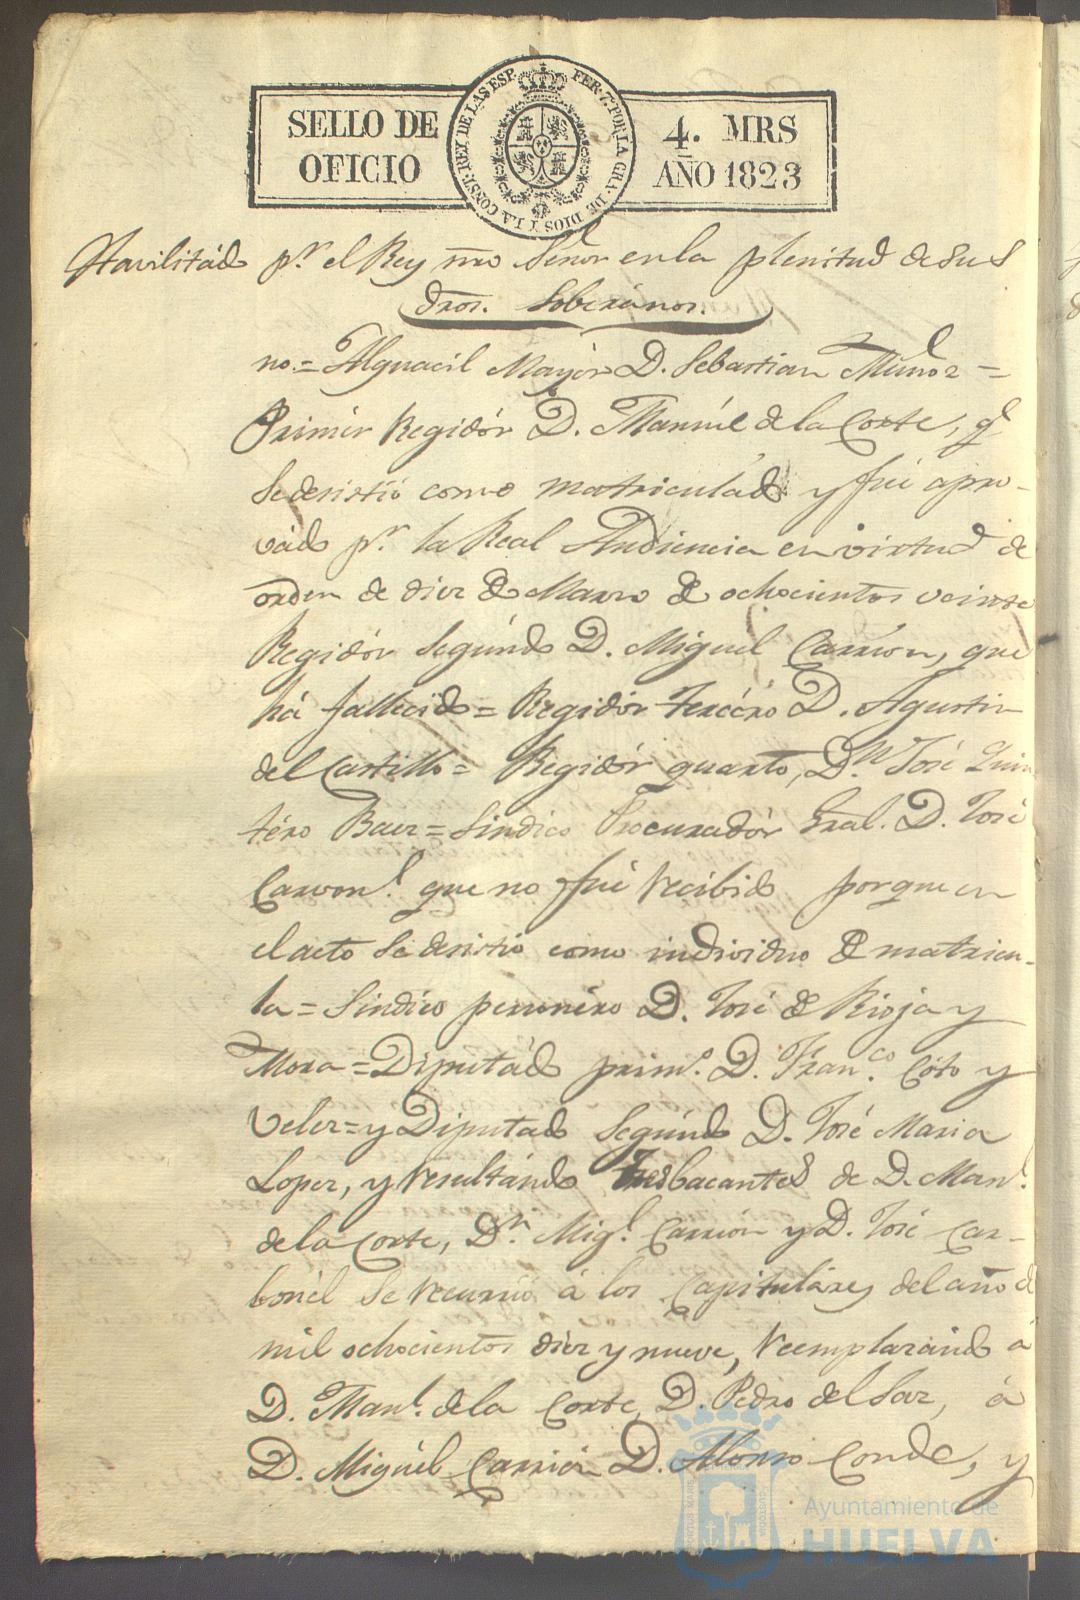 SELLO DE
OFICIO
FER. 7. POR LA GRA. DE DIOS Y LA CONST. REY DE LAS ESP.
4. MRS
AÑO 1823
Havilitádo pr. el Rey nro Señor en la plenitud de sus
dros. Soberános.
no.= Alguacil Mayór D. Sebastian Muñoz =
Primér Regidór D. Manuél de la Corte, q.e
se desistió como matriculádo y fué apro-
vádo pr. la Real Audiencia en virtud de
orden de diez de Marzo de ochocientos veinte
Regidór Segúndo D. Miguel Carrion, que
há fallecido = Regidór tercéro D. Agustin
del Castillo = Regidór quarto, D.n José Quin
téro Baez = Sindico Procuradór Gral. D. José
Carvon.l que no fué recibido porque en
el acto se desistió como individuo de matricu-
la = Sindico personéro D. José de Rioja y
Mora = Diputádo prim.o D. Fran.co Coto y
Velez = y Diputado Segúndo D. José Maria
Lopez, y resultándo tres bacantes de D. Man.l
de la Corte, D.n Mig.l Carrión y D. José Car-
bonél se recurrió á los Capituláres del año d
mil ochocientos diez y nueve, reemplazándo á
D. Man.l de la Corte, D. Pedro del Saz, á
D. Miguél Carrión D. Alonso Conde, y
PORTUS MARIS
CUSTODIA
Ayuntamiento de
HUELVA